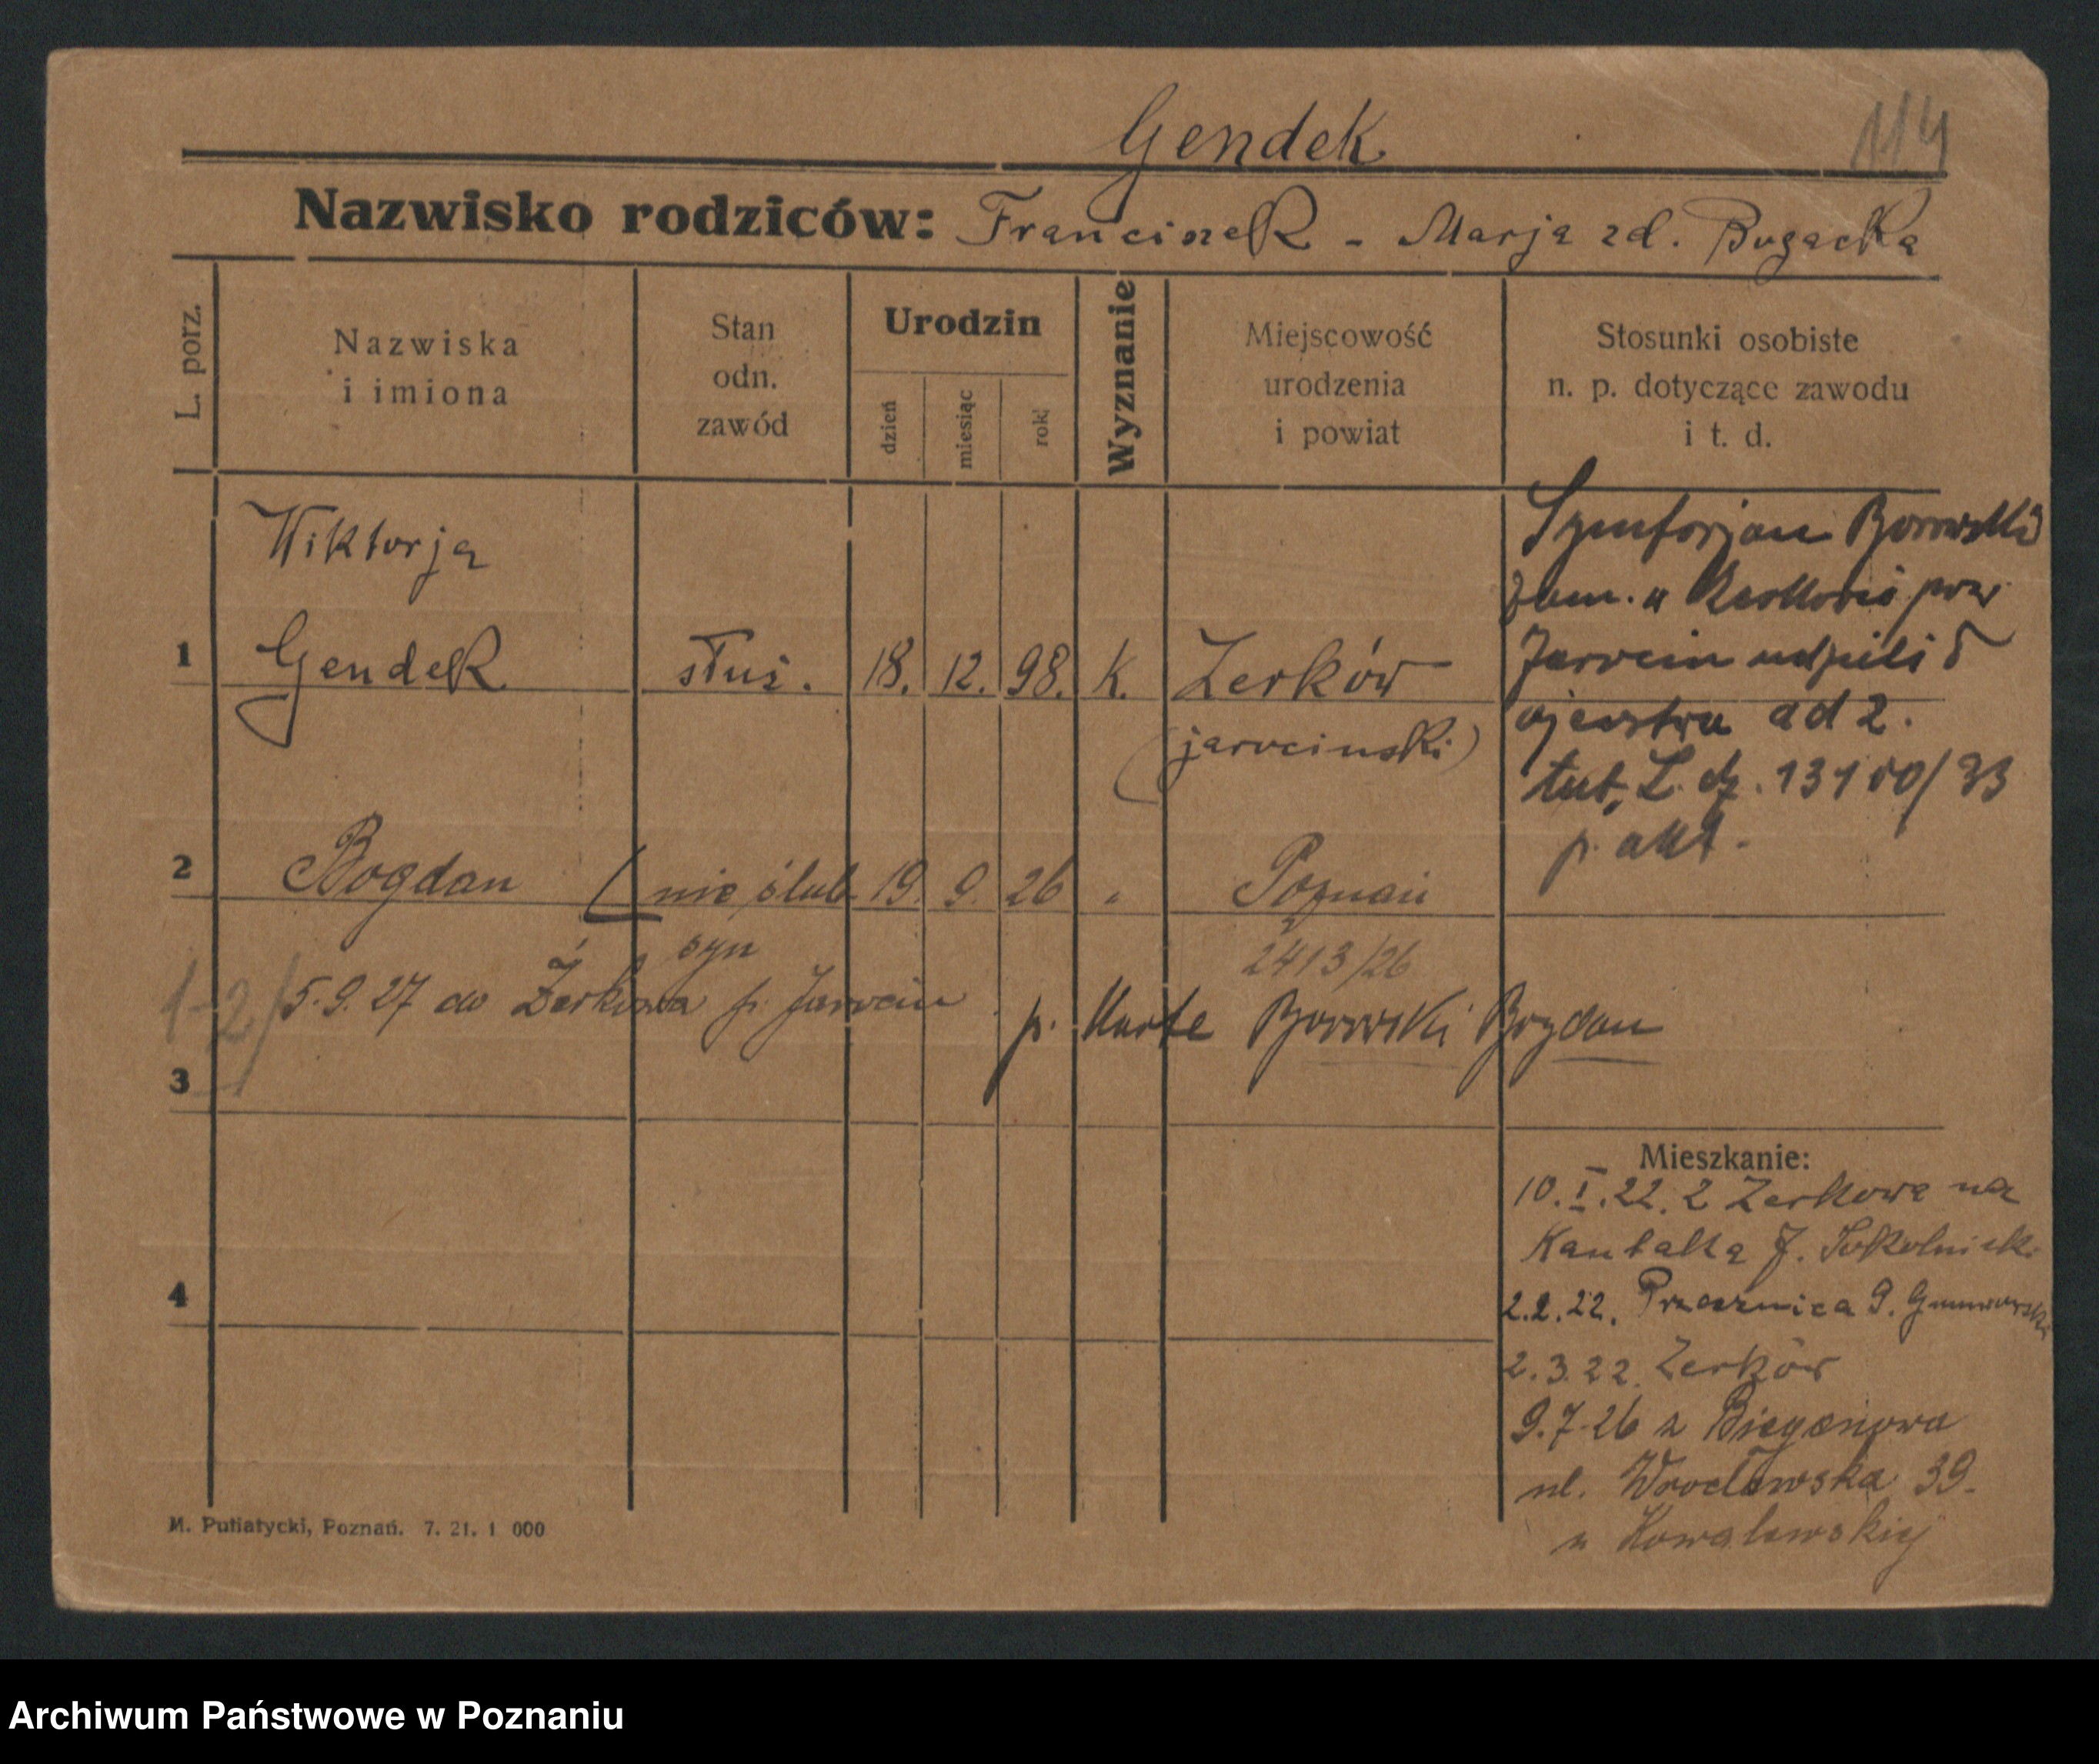 Gendek
114
Nazwisko rodziców: Franciszek - Marja zd. Bugacka
L. porz.
Nazwiska
i imiona
Stan
odn.
zawód
Urodzin
dzień
miesiąc
rok
Wyznanie
Miejscowość
urodzenia
i powiat
Stosunki osobiste
n. p. dotyczące zawodu
i t. d.
Wiktorja
1 Gendek służ. 18. 12. 98. k. Żerków
(jarociński)
Symforjan Borowski
zam. w pow
Jarocin
ojcostwa ad 2.
tut. L. dz. 13100/33
p. akt.
2 Bogdan (nie ślub 19. 9. 26 " Poznań
syn
2413/26
1-2/ 5.9.27 do Żerkowa p. Jarocin
p. Karte Borowski Bogdan
3
4
Mieszkanie:
10.I.22. z Zerkowa na
Kantaka 7. Sokolnicki
2.2.22. Przecznica 9.
2.3.22. Zerków
9.7.26 z Bieganowa
ul. Wrocławska 39.
u Kowalewskiej
M. Putiatycki, Poznań. 7. 21. 1 000
Archiwum Państwowe w Poznaniu